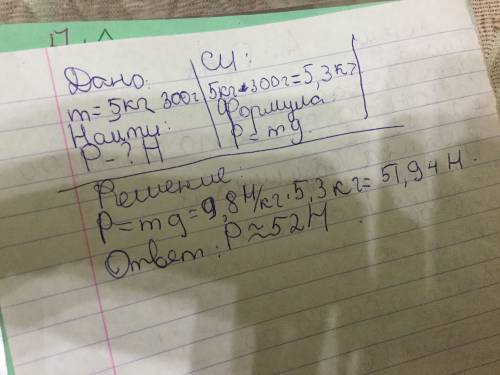 Дано:
m=5кг 300г
Найти:
P-? Н
СИ:
5кг+300г=5,3кг
Формула:
P=mg.
Решение:
P=mg=9,8Н/кг·5,3кг=51,94Н.
Ответ: P≈52Н